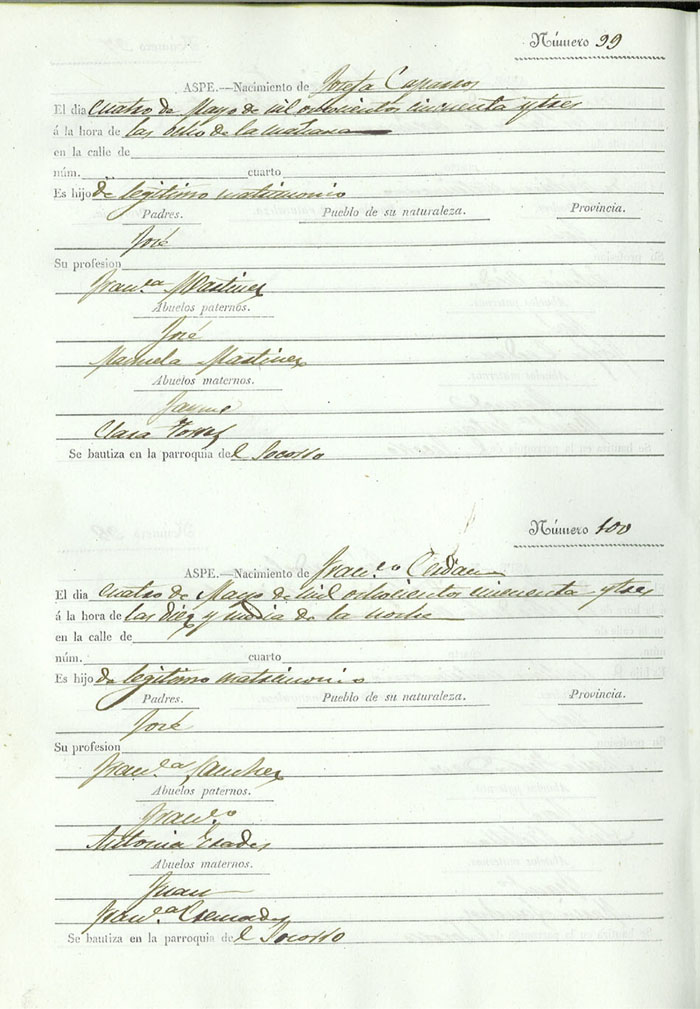 Número 99
ASPE.—Nacimiento de Josefa Caparros
El dia cuatro de Mayo de mil ochocientos cincuenta y tres
á la hora de las ocho de la mañana
en la calle de
núm. cuarto
Es hijo de legitimo matrimonio
Padres. Pueblo de su naturaleza. Provincia.
José
Su profesion
Fran.ca Martinez
Abuelos paternos.
José
Manuela Martinez
Abuelos maternos.
Jayme
Clara
Se bautiza en la parroquia del Socorro
Número 100
ASPE.—Nacimiento de Fran.co Cerdan
El dia cuatro de Mayo de mil ochocientos cincuenta y tres
á la hora de las diez y media de la noche
en la calle de
núm. cuarto
Es hijo de legitimo matrimonio
Padres. Pueblo de su naturaleza. Provincia.
José
Su profesion
Fran.ca Sanchez
Abuelos paternos.
Fran.co
Antonia
Abuelos maternos.
Juan
Fran.ca Cremades
Se bautiza en la parroquia del Socorro